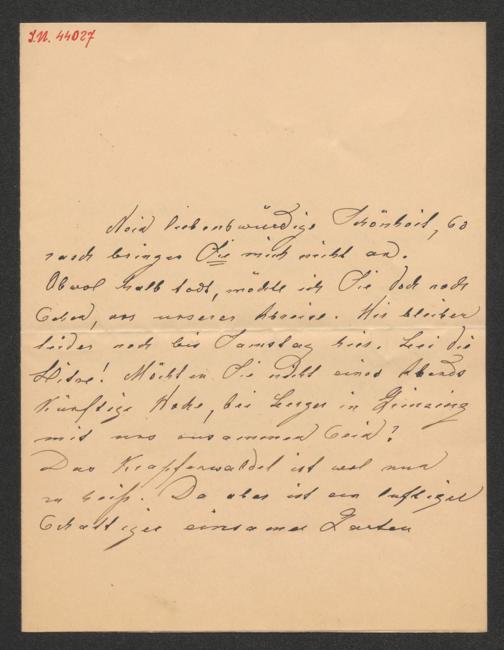 J.N. 44027
Nein liebenswürdige Schönheit, so
rasch bringen Sie mich nicht an.
Obwol halb todt, möchte ich Sie doch noch
sehen, vor unserer Abreise. Wir bleiben
leider noch bis Samstag hier. bei die
Hitze! Möchten Sie nicht eines Abends
künftige Woche, bei Berger in Grinzing
mit uns zusammen sein?
Das Krapfenwaldel ist wol nun
zu heiß. Da aber ist ein luftiger
schattiger einsamer Garten